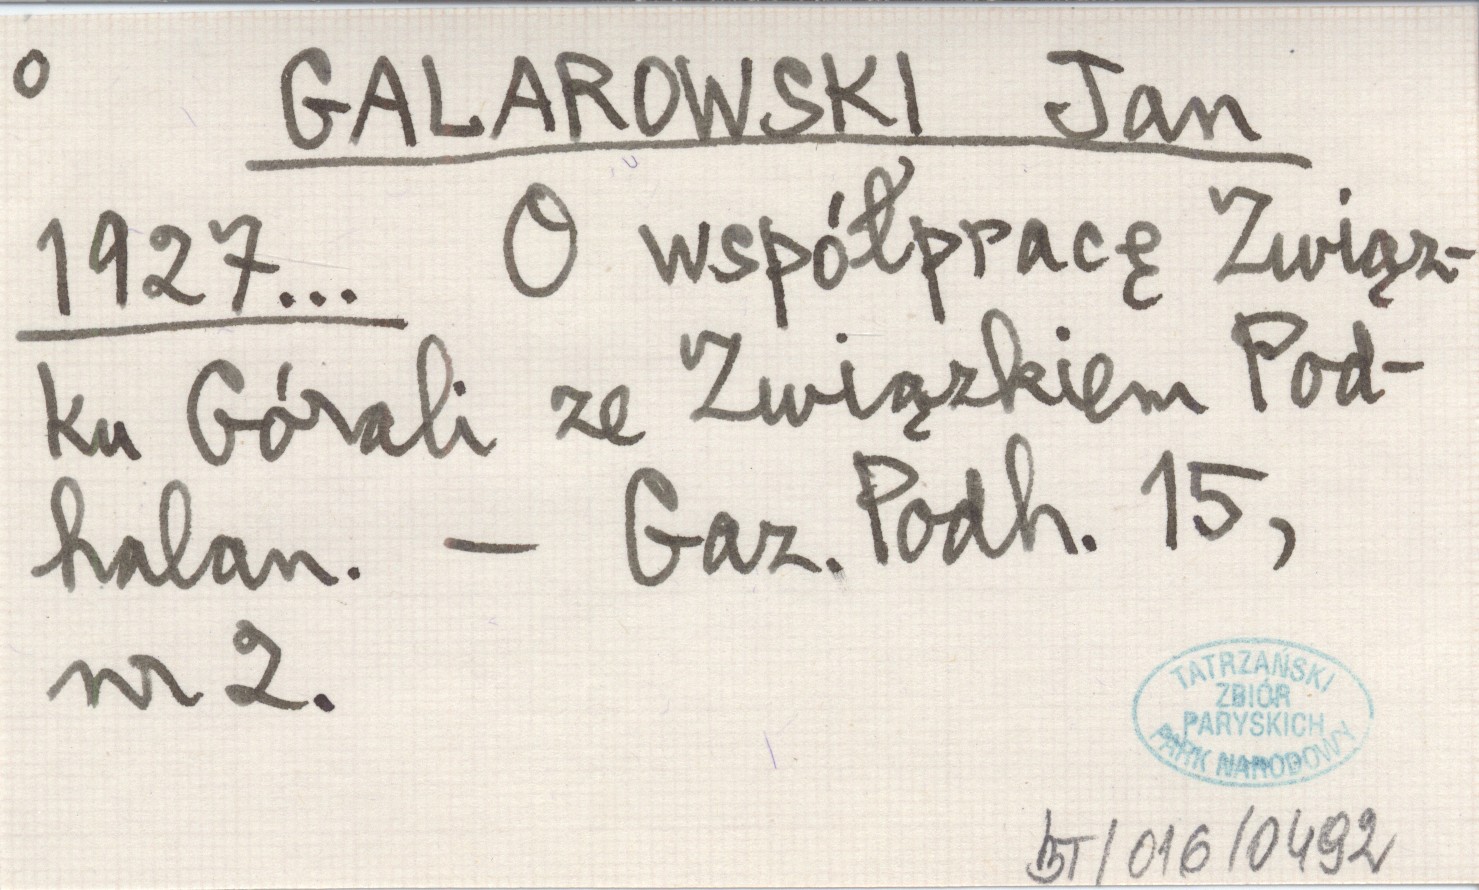 o GALAROWSKI Jan
1927... O współpracę Związ-
ku Górali ze Związkiem Pod-
halan. — Gaz. Podh. 15,
nr 2.
TATRZAŃSKI
ZBIÓR
PARYSKICH
PARK NARODOWY
BT/016/0492